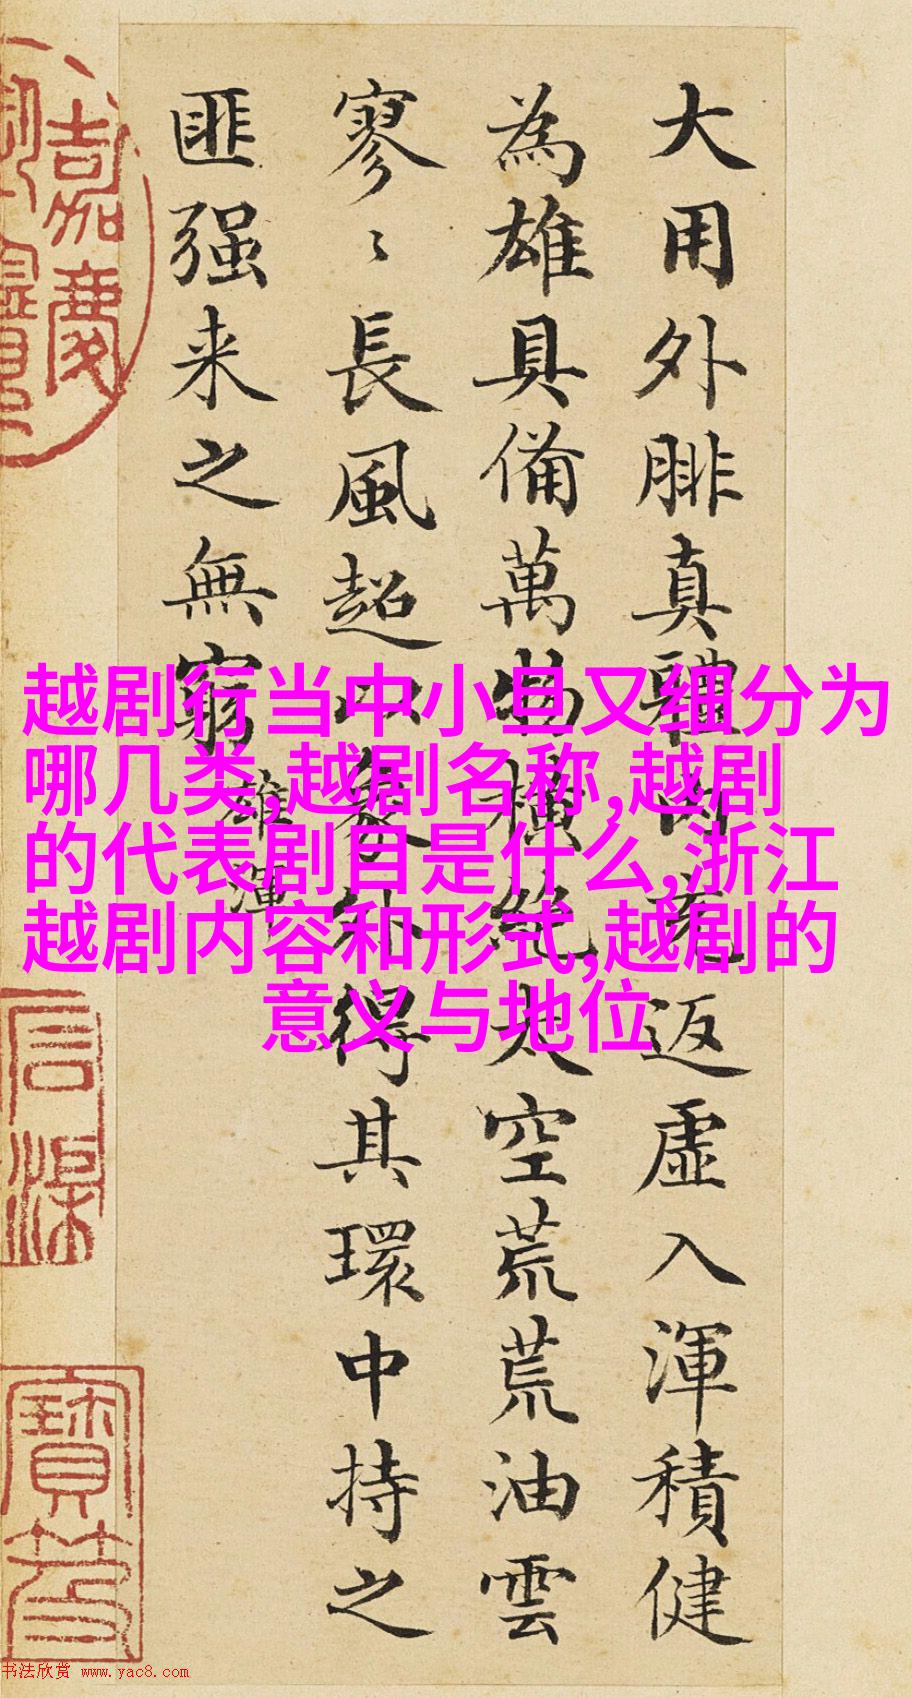 大用外腓真體内充返虛入渾積健
為雄具備萬物橫絕太空荒荒油雲
寥〻長風超以象外得其環中持之
匪强来之無窮
雄渾
越剧行当中小旦又细分为
哪几类,越剧名称,越剧
的代表剧目是什么,浙江
越剧内容和形式,越剧的
意义与地位
嘉慶
寶笈
书法欣赏 www.yac8.com